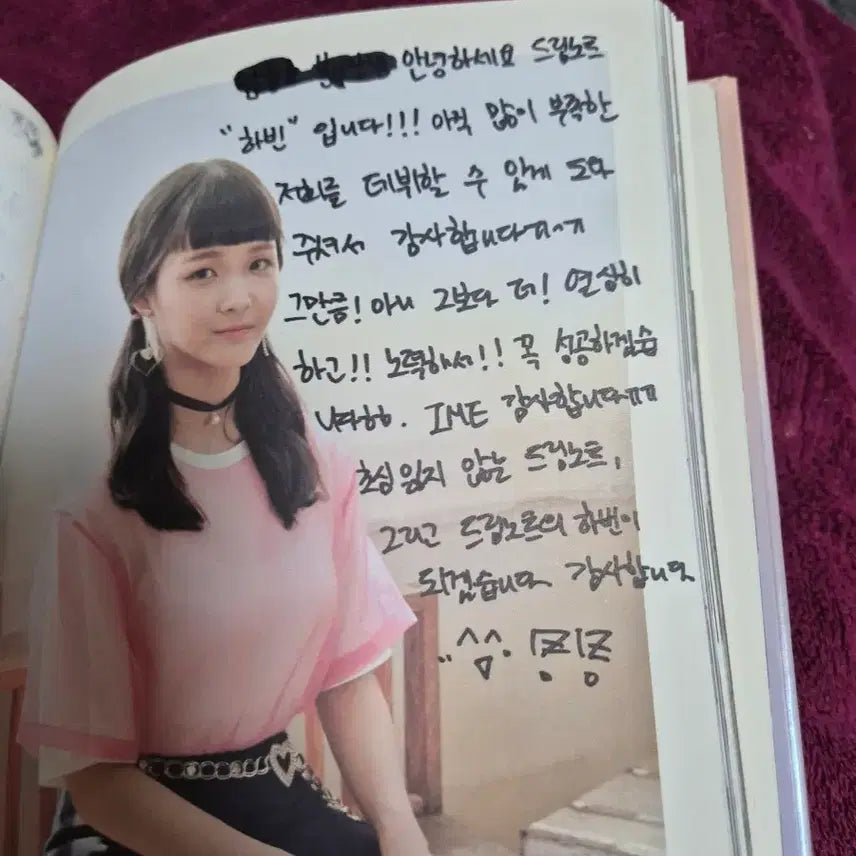 안녕하세요 드림노트
"하빈" 입니다!!! 아직 많이 부족한
저희를 데뷔할 수 있게 도와
주셔서 감사합니다ㅠ~ㅠ
그만큼! 아니 그보다 더! 열심히
하고!! 노력해서!! 꼭 성공하겠습
니다ㅎㅎ. IME 감사합니다ㅠㅠ
초심 잃지 않는 드림노트,
그리고 드림노트의 하빈이
되겠습니다 감사합니다